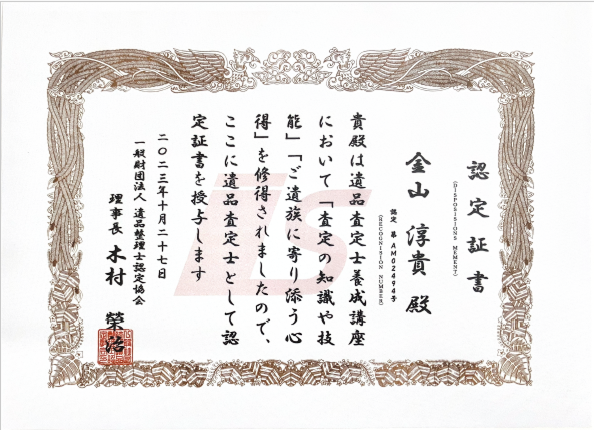 認定証書
(DISPOSISIONS MEMENT)
金山 淳貴 殿
認定 第 AM02494号
(RECOGNISION NUMBER)
貴殿は遺品査定士養成講座
において「査定の知識や技
能」「ご遺族に寄り添う心
得」を修得されましたので、
ここに遺品査定士として認
定証書を授与します
二〇二三年十月二十七日
一般財団法人 遺品整理士認定協会
理事長 木村 榮治
ILS